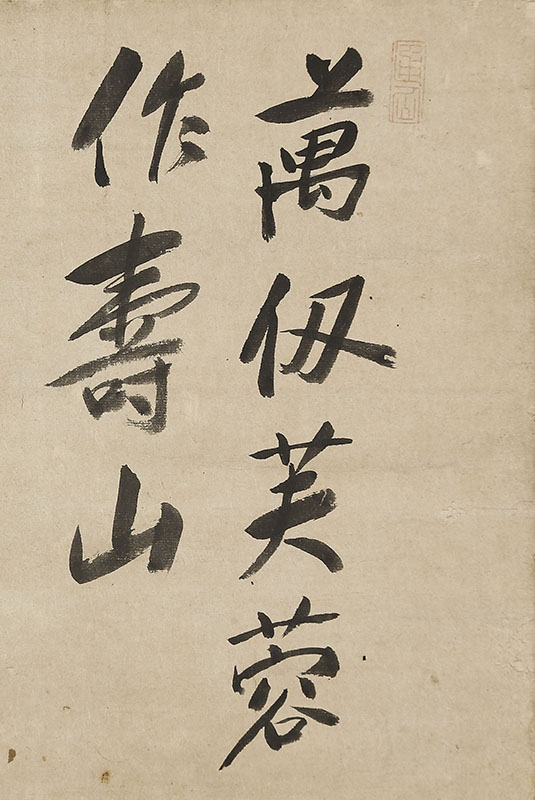 萬仭芙蓉
作壽山